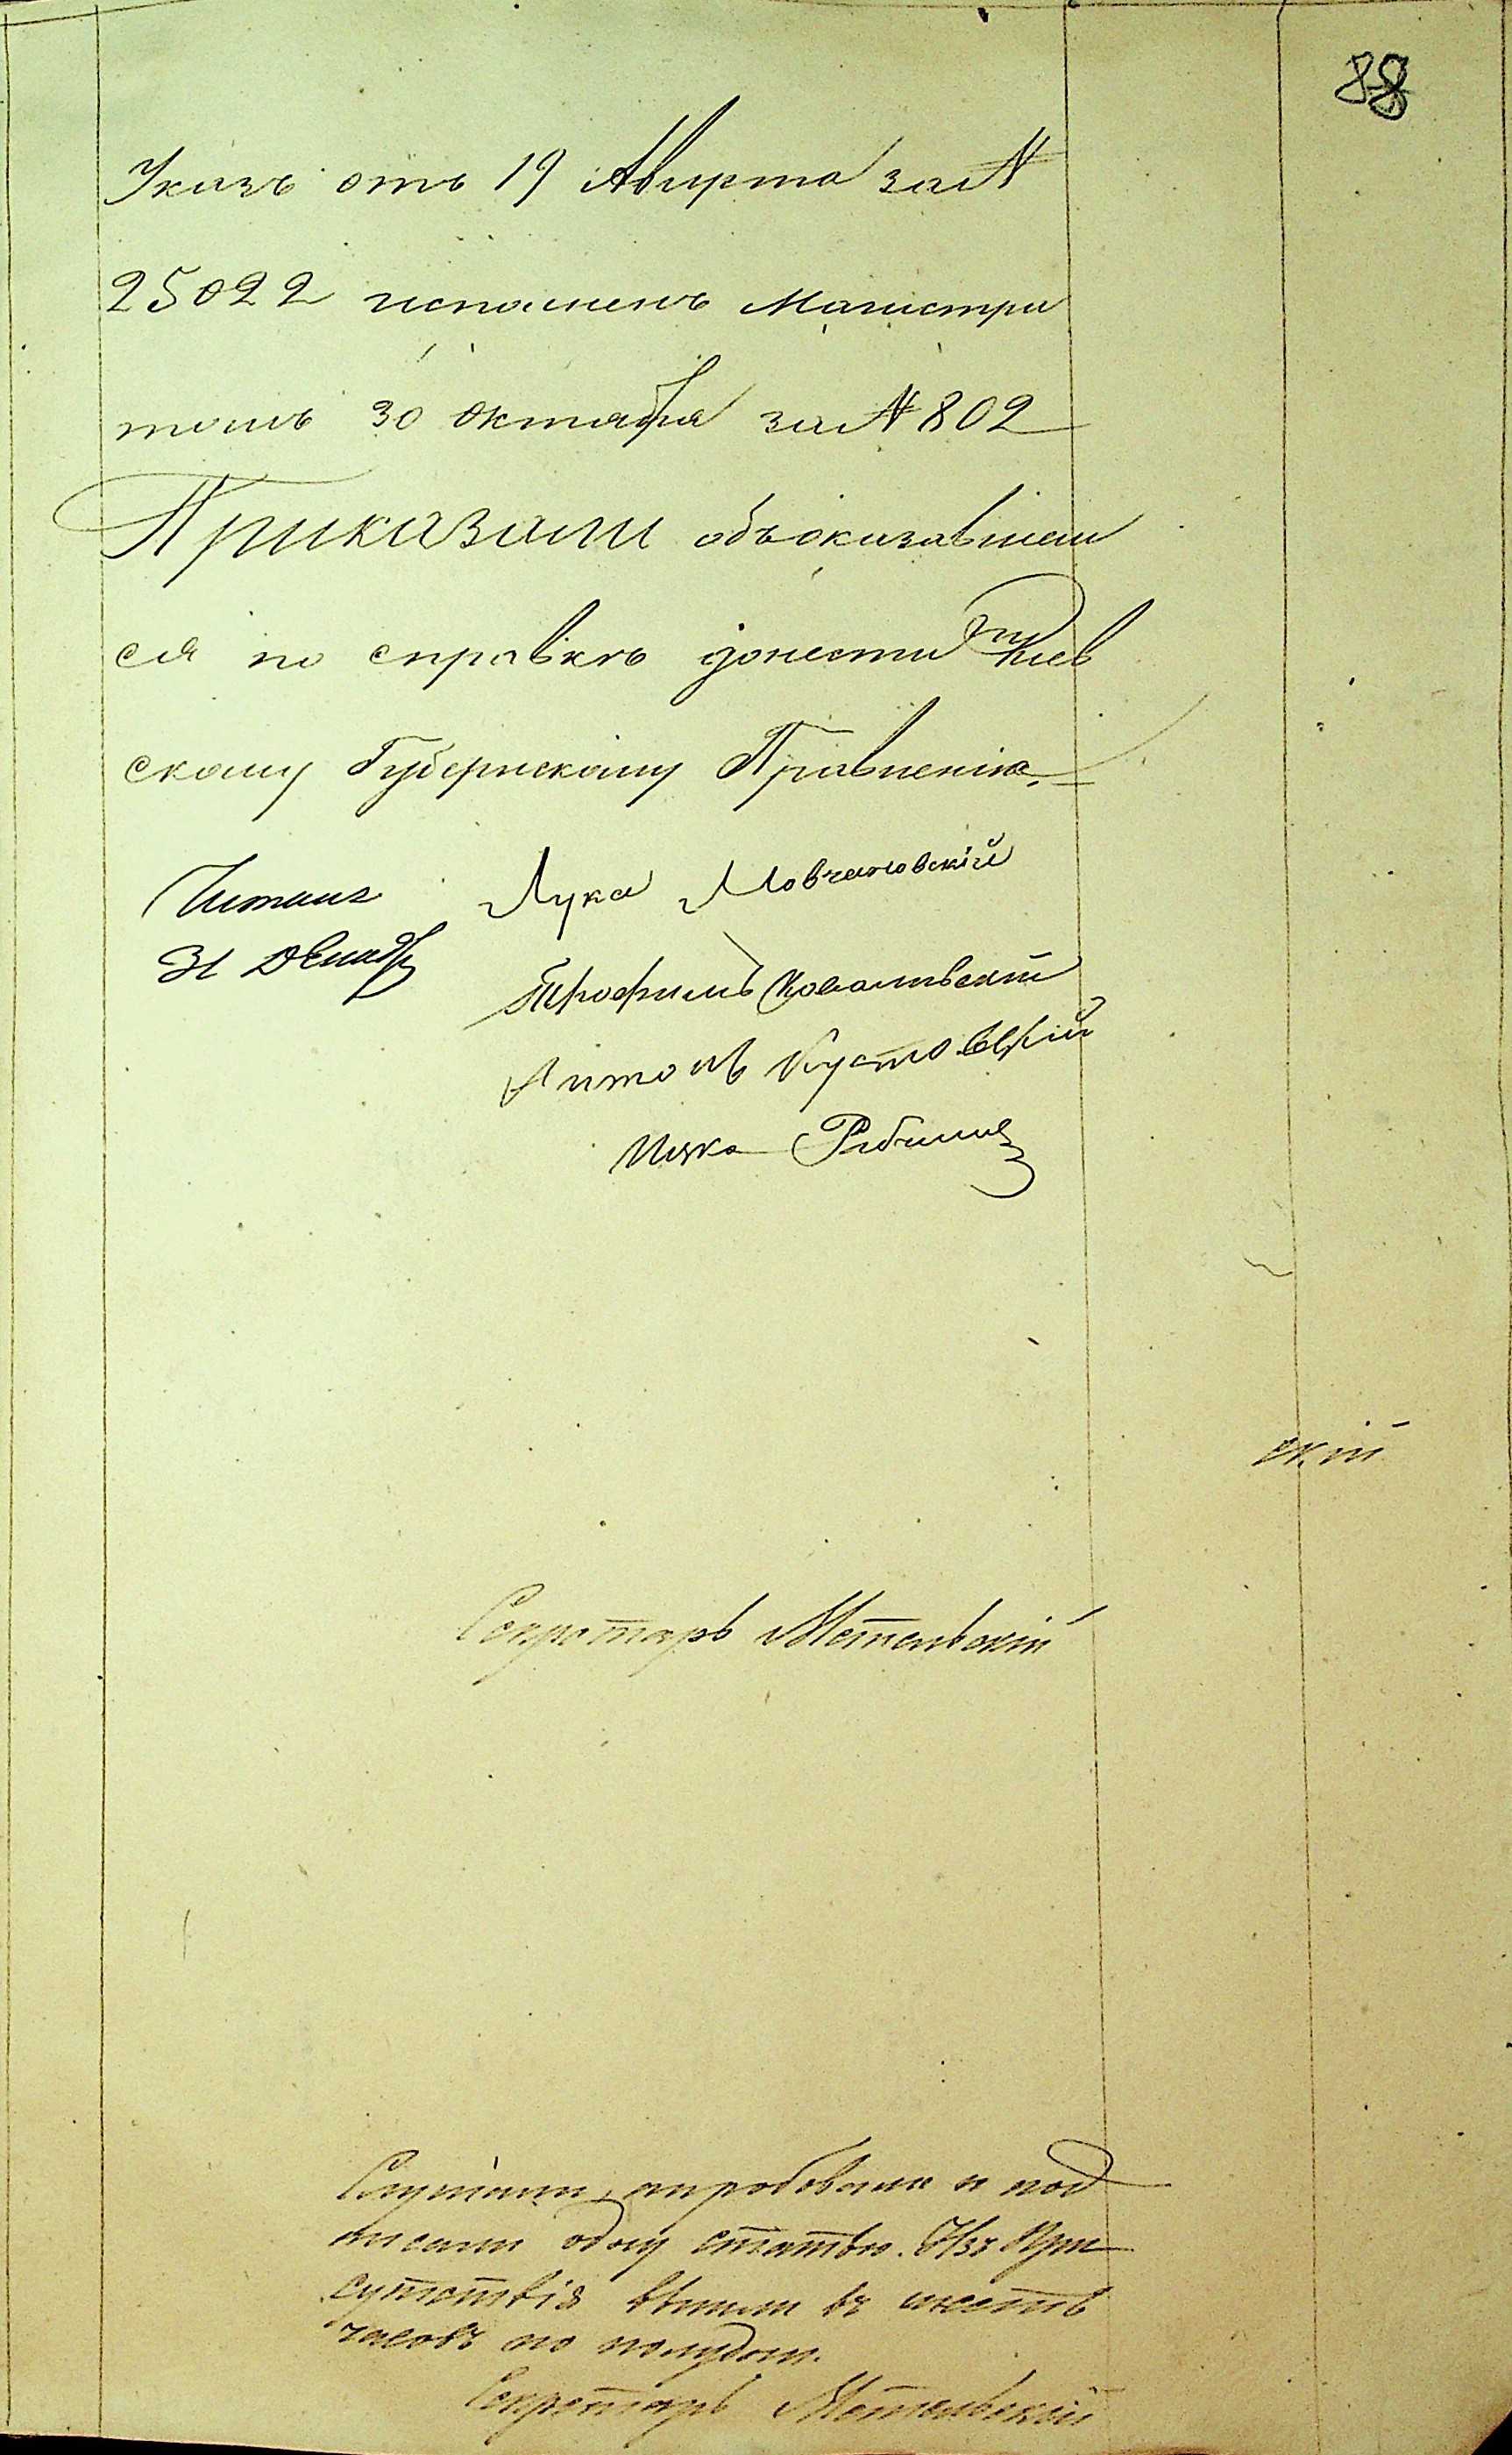 88
Указъ отъ 19 Августа за №
25022 исполненъ Магистра
томъ 30 Октября за № 802
Приказали объ оказавшем
ся по справкѣ донести Кiев
скому Губернскому Правленiю.
Читалъ
31 Декабр
Лука Мовчановскiй
Трофимъ Ковалевскiй
Антонъ Кустовскiй
Ицко
скiй
Секретарь Метельскiй
Слушали, апробовали и под
писали одну статью. Изъ При
сутствiя вышли въ шесть
часовъ по полудни.
Секретарь Метельскiй